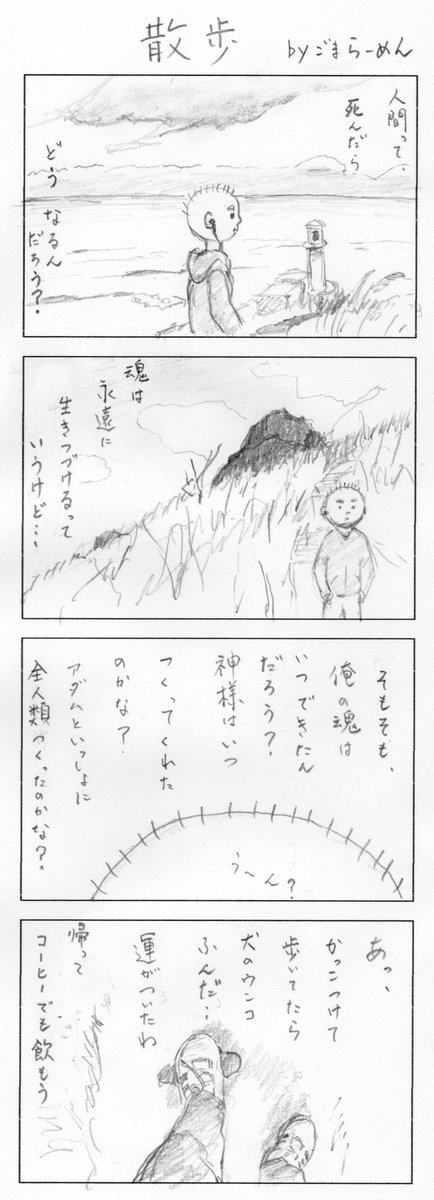 散歩
byごまらーめん
人間って、
死んだら
どう なるん
だろう?
魂は
永遠に
生きつづけるって
いうけど…
そもそも、
俺の魂は
いつできたん
だろう?
神様はいつ
つくってくれた
のかな?
アダムといっしょに
全人類つくったのかな?
う〜ん?
あっ、
かっこつけて
歩いてたら
犬のウンコ
ふんだ…
運がついたわ
帰って
コーヒーでも飲もう